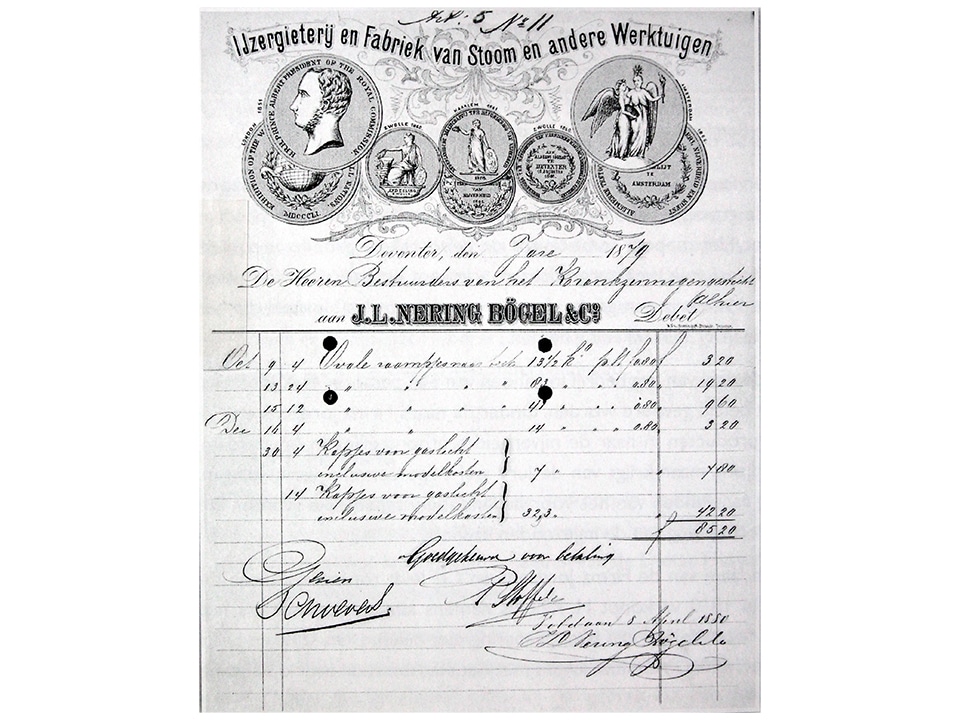 Art: 5 No 11
IJzergieterij en Fabriek van Stoom en andere Werktuigen
LONDON 1851
EXHIBITION OF THE W ALL NATIONS
H.R.H. PRINCE ALBERT PRESIDENT OF THE ROYAL COMMISSION
MDCCCLI
ZWOLLE
HAARLEM
ZWOLLE
AMSTERDAM
AFDEELING
VAN NIJVERHEID
DEVENTER
TE AMSTERDAM
Deventer, den 1879
De Heeren Bestuurders van het Krankzinnigengesticht
alhier
aan J.L. NERING BÖGEL & Co Debet
Oct 9 4 Ovale raampjes 13 1/2 ko p. st. f 0.80 f 3 20
13 24 " " " " " " " 0.80 " 19 20
15 12 " " " " 41 " " " 0.80 " 9 60
Dec 16 4 " " 14 " " " 0.80 " 3 20
30 4 Kapjes voor gaslicht
inclusive modelkosten } 7 " " 7 80
14 Kapjes voor gaslicht
inclusive modelkosten } 32,3 " " 42 20
f 85 20
Goedgekeurd voor betaling
Gezien
Voldaan 8 April 1880
Nering Bögel & Co